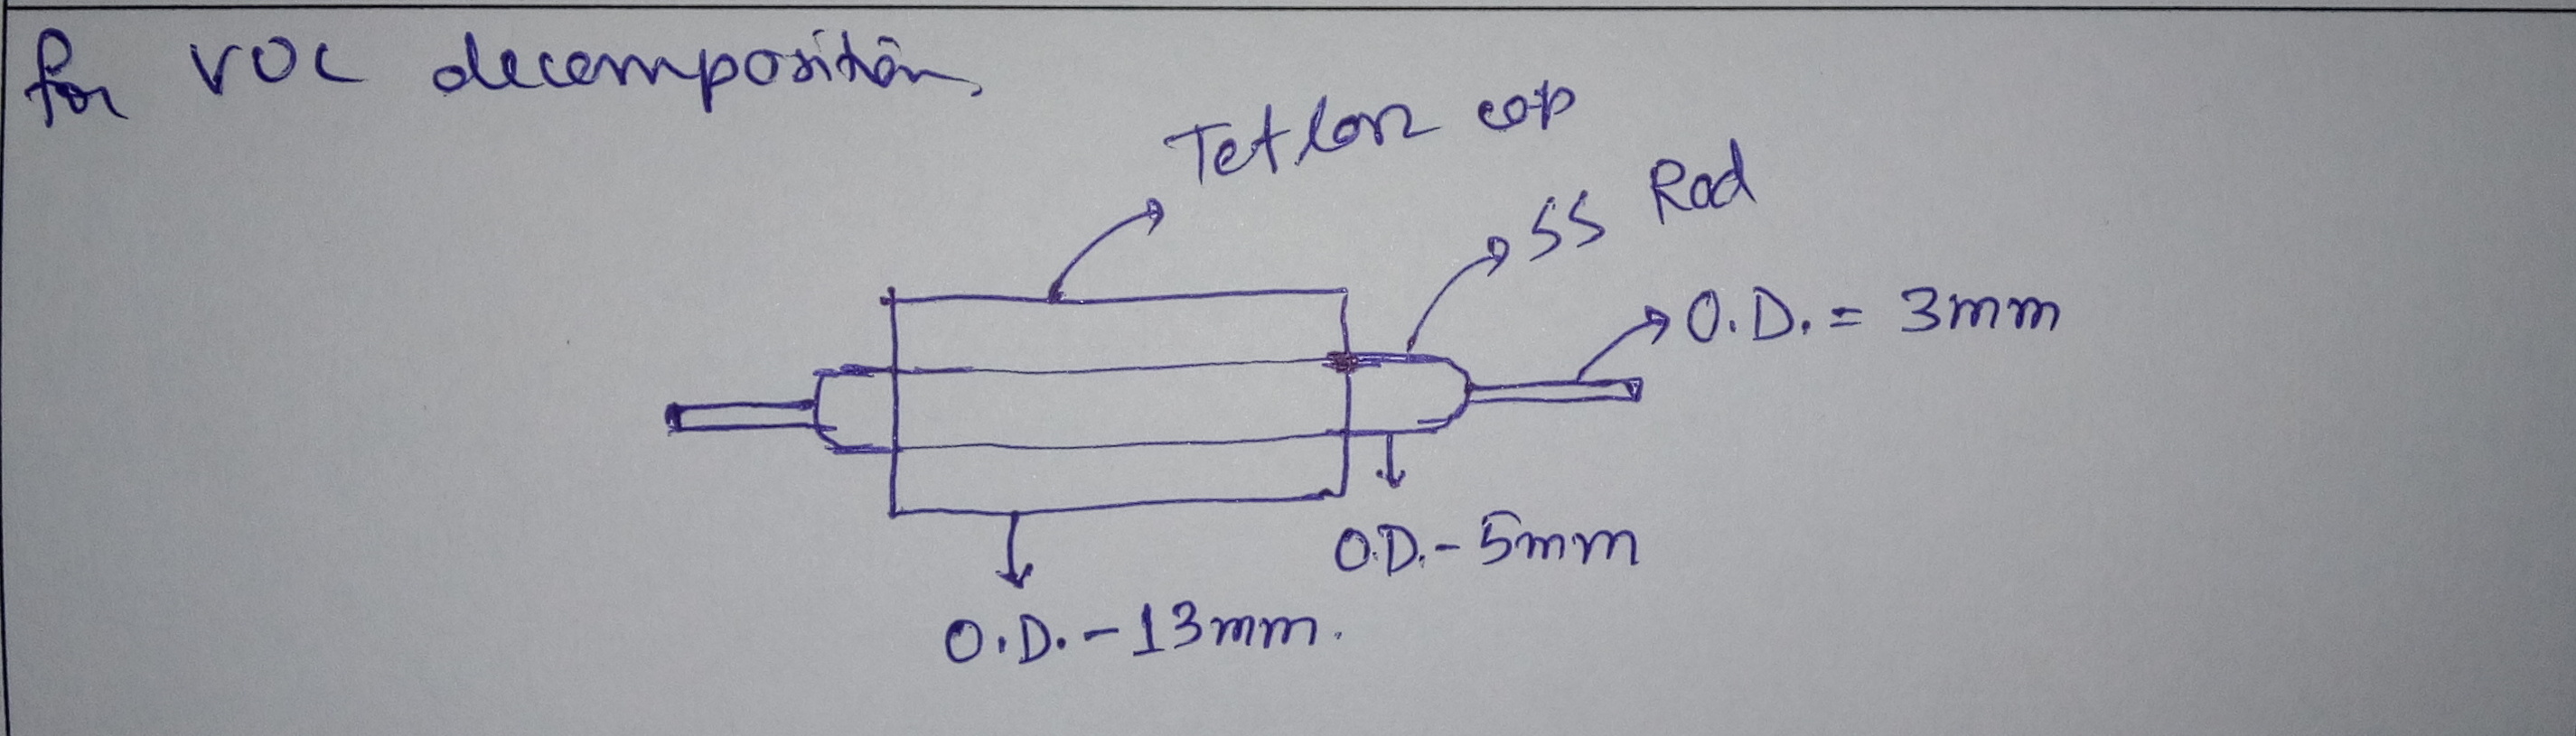 for VOC decomposition
Teflon cap
SS Rod
O.D. = 3mm
O.D. - 5mm
O.D. - 13mm.